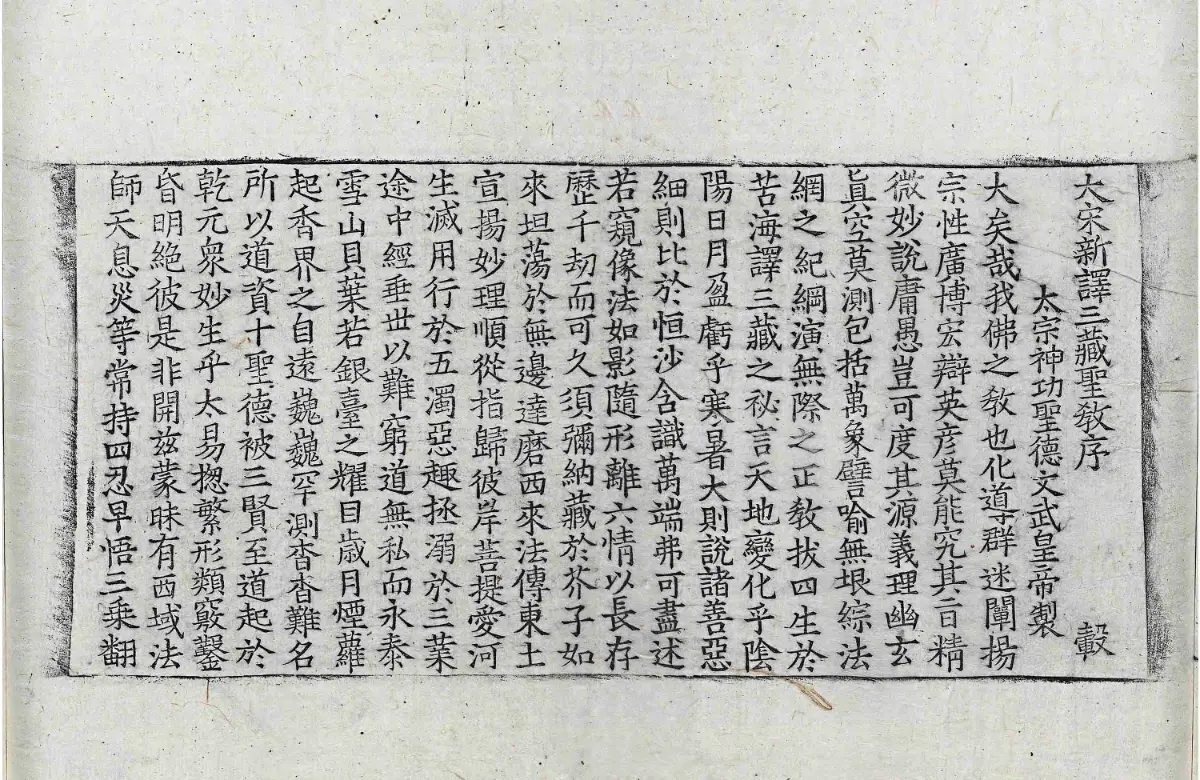 大宋新譯三藏聖敎序
太宗神功聖德文武皇帝製 轂
大矣哉我佛之敎也化導群迷闡揚
宗性廣博宏辯英彦莫能究其旨精
微妙說庸愚豈可度其源義理幽玄
眞空莫測包括萬象譬喻無垠綜法
網之紀綱演無際之正敎拔四生於
苦海譯三藏之祕言天地變化乎陰
陽日月盈虧乎寒暑大則說諸善惡
細則比於恒沙含識萬端弗可盡述
若窺像法如影隨形離六情以長存
歷千劫而可久須彌納藏於芥子如
來坦蕩於無邊達磨西來法傳東土
宣揚妙理順從指歸彼岸菩提愛河
生滅用行於五濁惡趣拯溺於三業
途中經垂世以難窮道無私而永泰
雪山貝葉若銀臺之耀目歲月煙蘿
起香界之自遠巍巍罕測杳杳難名
所以道資十聖德被三賢至道起於
乾元衆妙生乎太易揔繁形類竅鑿
昏明絶彼是非開兹蒙昧有西域法
師天息災等常持四忍早悟三乘翻